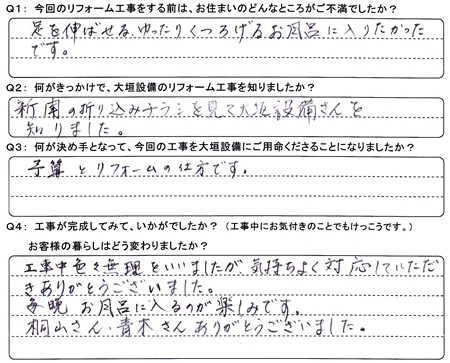 Q1: 今回のリフォーム工事をする前は、お住まいのどんなところがご不満でしたか?
足を伸ばせる、ゆったりくつろげるお風呂に入りたかった
です。
Q2: 何がきっかけで、大垣設備のリフォーム工事を知りましたか?
新聞の折り込みチラシを見て大垣設備さんを
知りました。
Q3: 何が決め手となって、今回の工事を大垣設備にご用命くださることになりましたか?
予算とリフォームの仕方です。
Q4: 工事が完成してみて、いかがでしたか? (工事中にお気付きのことでもけっこうです。)
お客様の暮らしはどう変わりましたか?
工事中色々無理をいいましたが気持ちよく対応していただ
きありがとうございました。
毎晩お風呂に入るのが楽しみです。
桐山さん・青木さんありがとうございました。